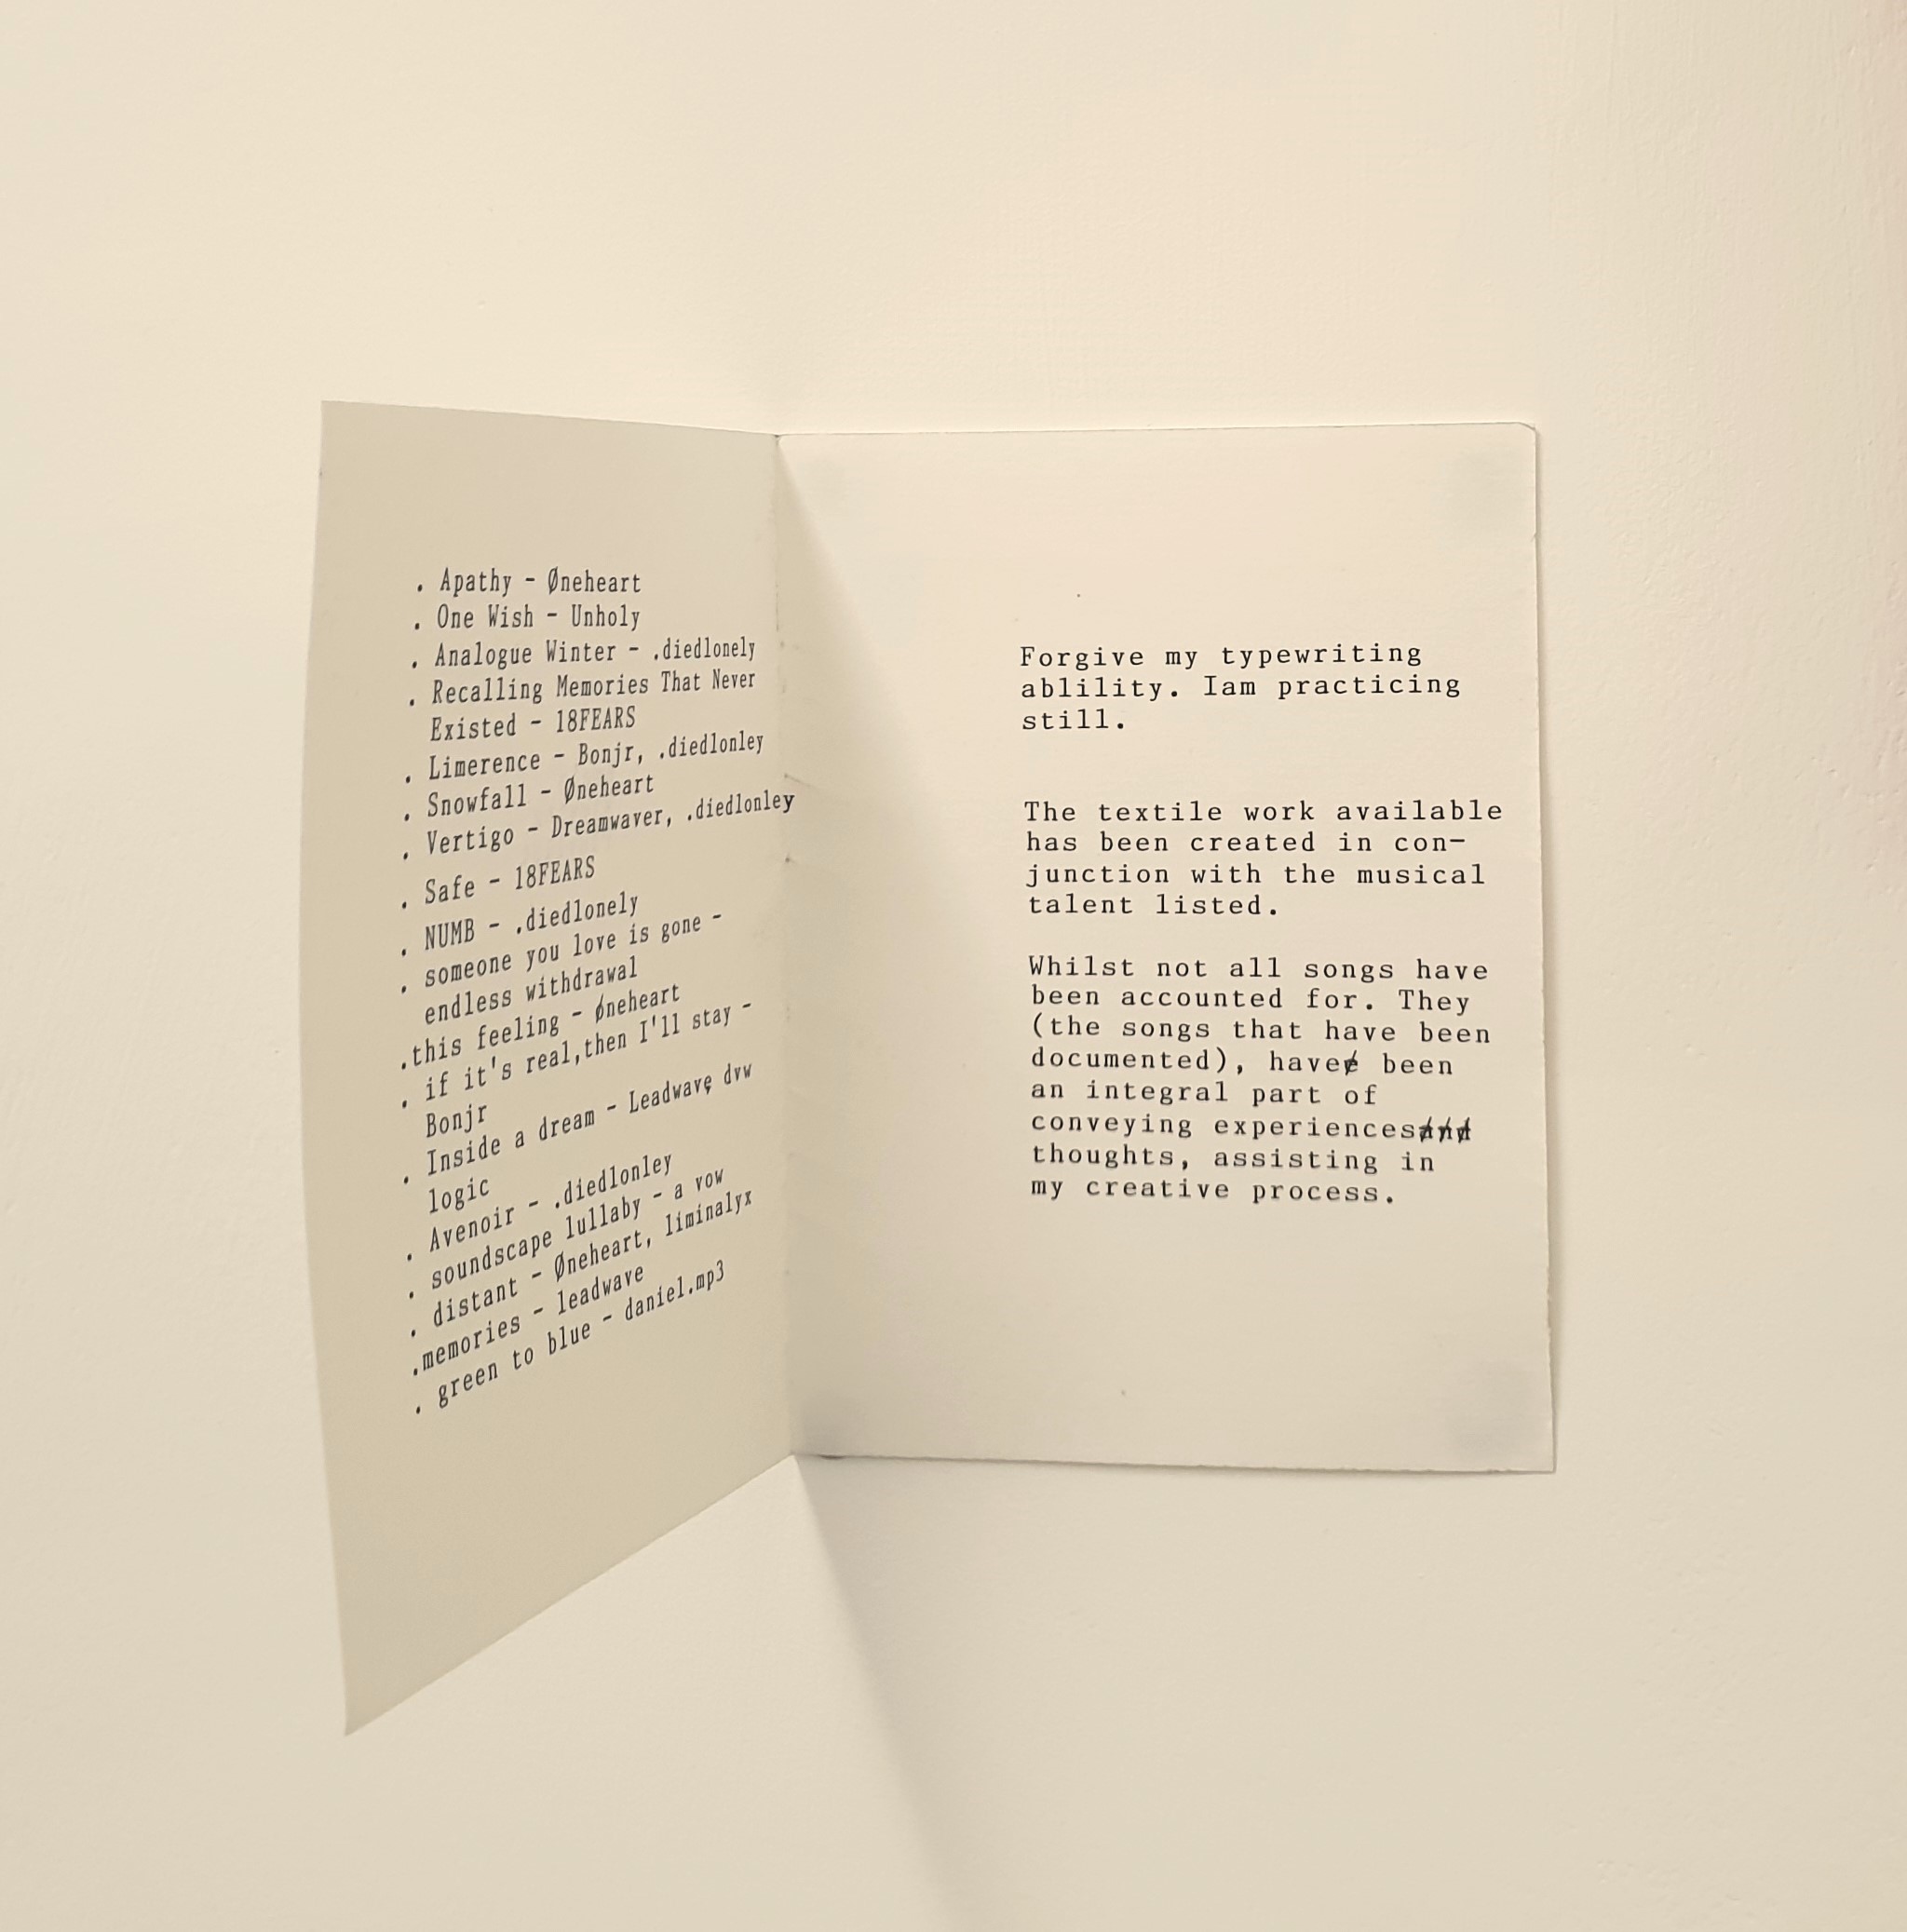 . Apathy - Øneheart
. One Wish - Unholy
. Analogue Winter - .diedlonely
. Recalling Memories That Never
Existed - 18FEARS
. Limerence - Bonjr, .diedlonley
. Snowfall - Øneheart
. Vertigo - Dreamwaver, .diedlonley
. Safe - 18FEARS
. NUMB - .diedlonely
. someone you love is gone -
endless withdrawal
.this feeling - øneheart
. if it's real,then I'll stay -
Bonjr
. Inside a dream - Leadwave, dvw
logic
. Avenoir - .diedlonley
. soundscape lullaby - a vow
. distant - Øneheart, liminalyx
.memories - leadwave
. green to blue - daniel.mp3
Forgive my typewriting
ablility. Iam practicing
still.
The textile work available
has been created in con-
junction with the musical
talent listed.
Whilst not all songs have
been accounted for. They
(the songs that have been
documented), have been
an integral part of
conveying experiencesand
thoughts, assisting in
my creative process.